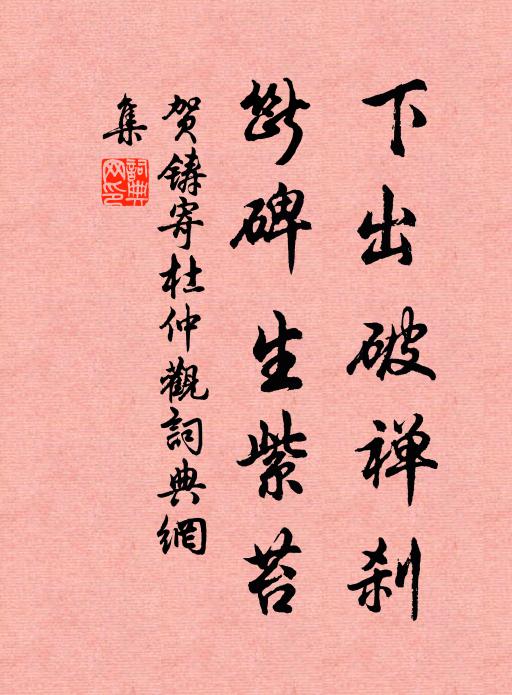 下出破禅刹
断碑生紫苔
贺铸寄杜仲觀詞典網
集
詞典網印